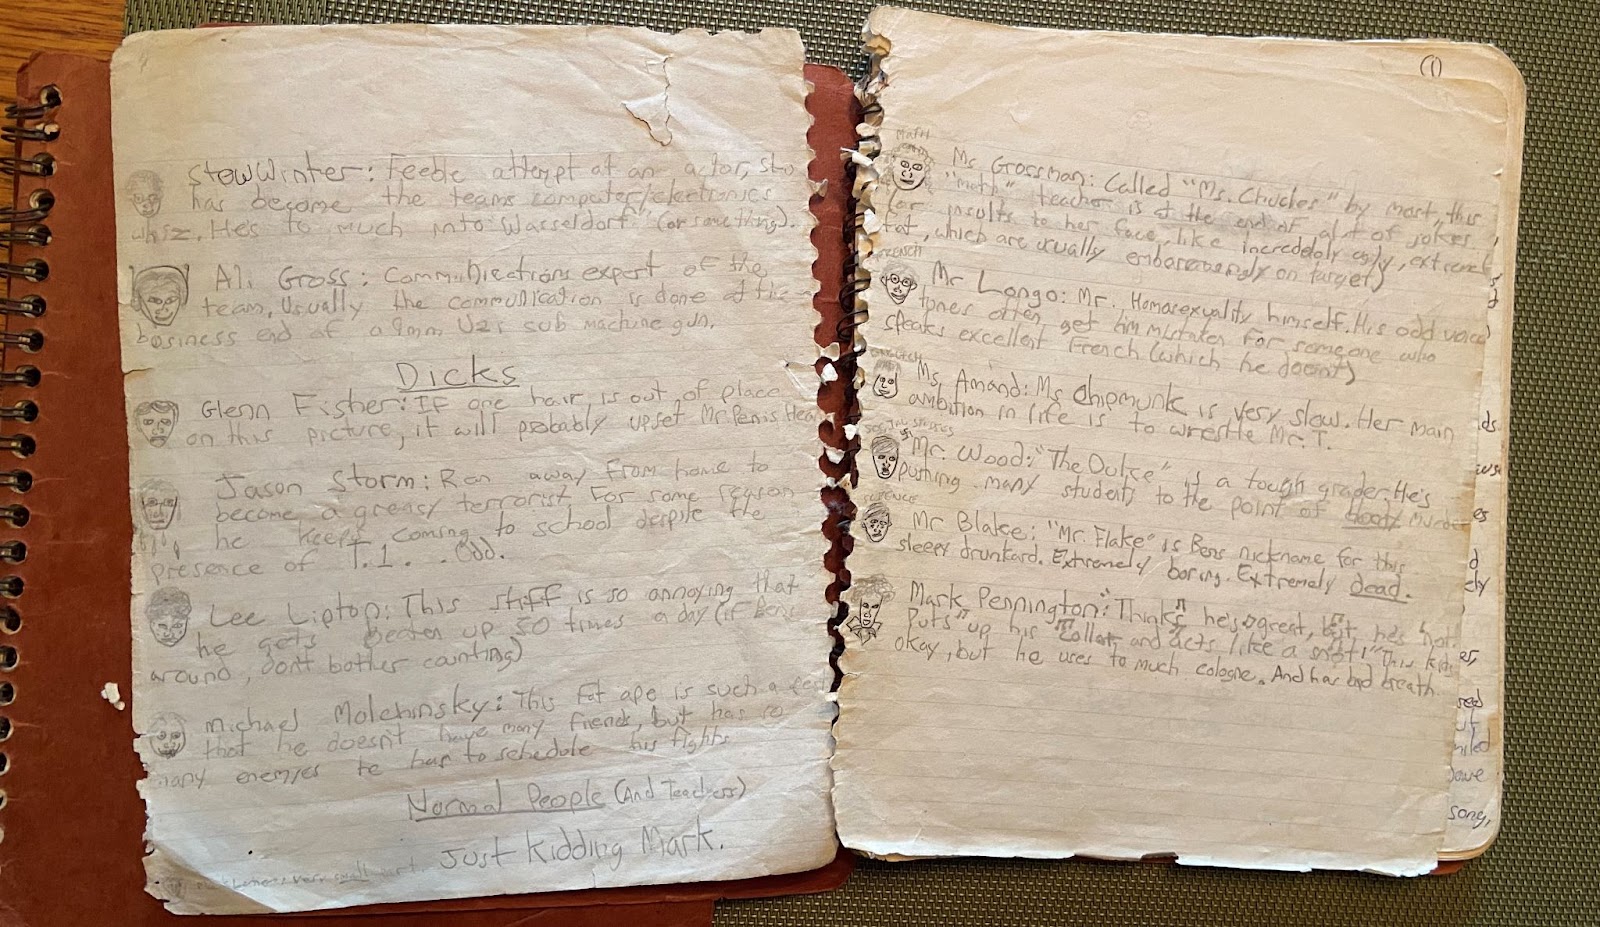 Stew Winter: Feeble attempt at an actor, stu
has become the teams computer/electronics
whiz. He's to much into "Wasseldorf" (or something).
Ali Gross: Communications expert of the
team, Usually the communication is done at the
business end of a 9mm Uzi sub machine gun.
Dicks
Glenn Fisher: If one hair is out of place
on this picture, it will probably upset Mr Penis Head
Jason Storm: Ran away from home to
become a greasy terrorist For some reason
he keeps coming to school despite the
presence of T.1. . . Odd.
Lee Liptop: This stiff is so annoying that
he gets beaten up 50 times a day (if Bens
around, dont bother counting)
Michael Molchinsky: This Fat ape is such a
that he doesn't have many friends, but has so
many enemies he has to schedule his fights
Normal People (And Teachers)
Just Kidding Mark.
very small
(1)
MATH
Ms. Grossman: Called "Ms. Chuckes" by most, this
"math" teacher is at the end of alot of jokes
(or insults to her face, like incredoloy ugly, extremely
fat, which are usually embarassingly on target)
FRENCH
Mr Longo: Mr. Homosexuality himself. His odd voice
tones often get him mistaken for someone who
speaks excellent French (which he doesnt)
ENGLISH
Ms. Amand: Ms Chipmunk is very slow. Her main
ambition in life is to wrestle Mr. T.
SOCIAL STUDIES
Mr. Wood: "The Duke" is a tough grader. He's
pushing many students to the point of bloody Murder
SCIENCE
Mr Blake: "Mr. Flake" is Bens nickname for this
sleepy drunkard. Extremely boring. Extremely dead.
Mark Pennington: Thinks he's great, but he's not.
Puts up his collar, and acts like a snot! This kids
okay, but he uses to much cologne. And has bad breath.
song,